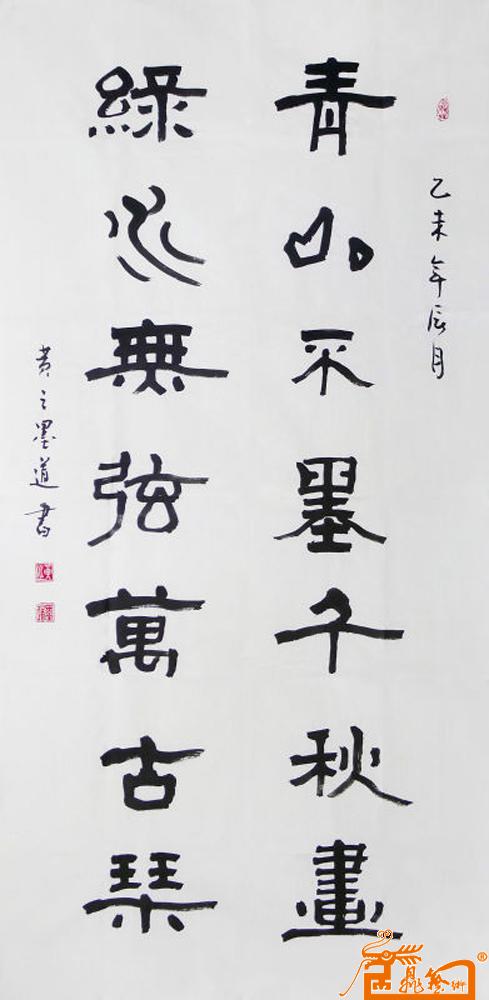 乙未年辰月
青山不墨千秋畫
綠水無弦萬古琴
黄之墨道書